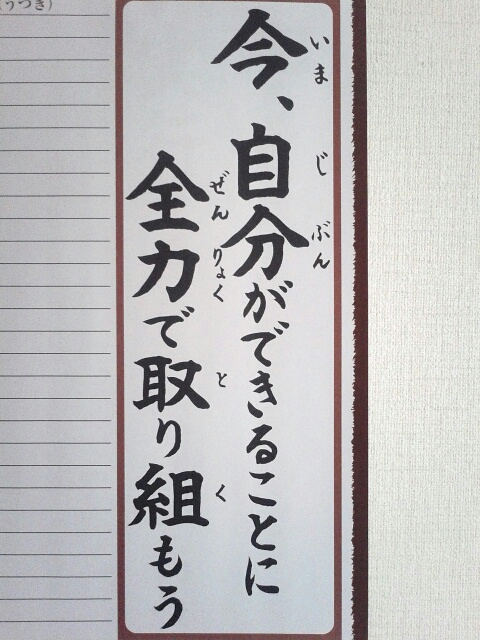 今、自分ができることに
いま じぶん
全力で取り組もう
ぜんりょく と く
(うつき)